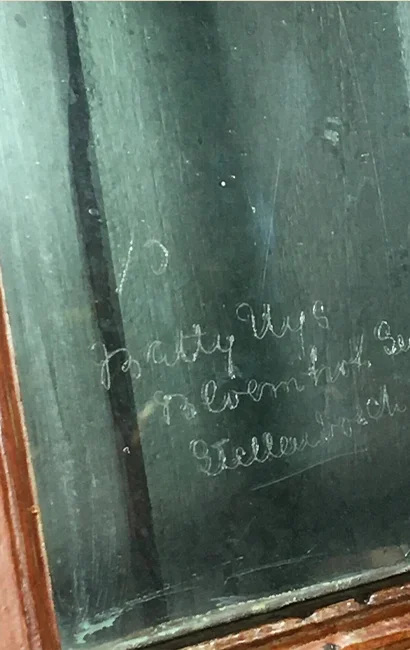 Batty Uys
Bloemhof Se
Stellenbosch